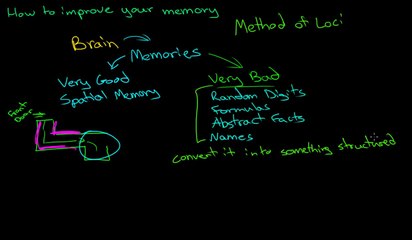 How to improve your memory
Method of Loci
Brain
Memories
Very Good
Spatial Memory
Very Bad
Random Digits
Formulas
Abstract Facts
Names
Front
Door
convert it into something structured